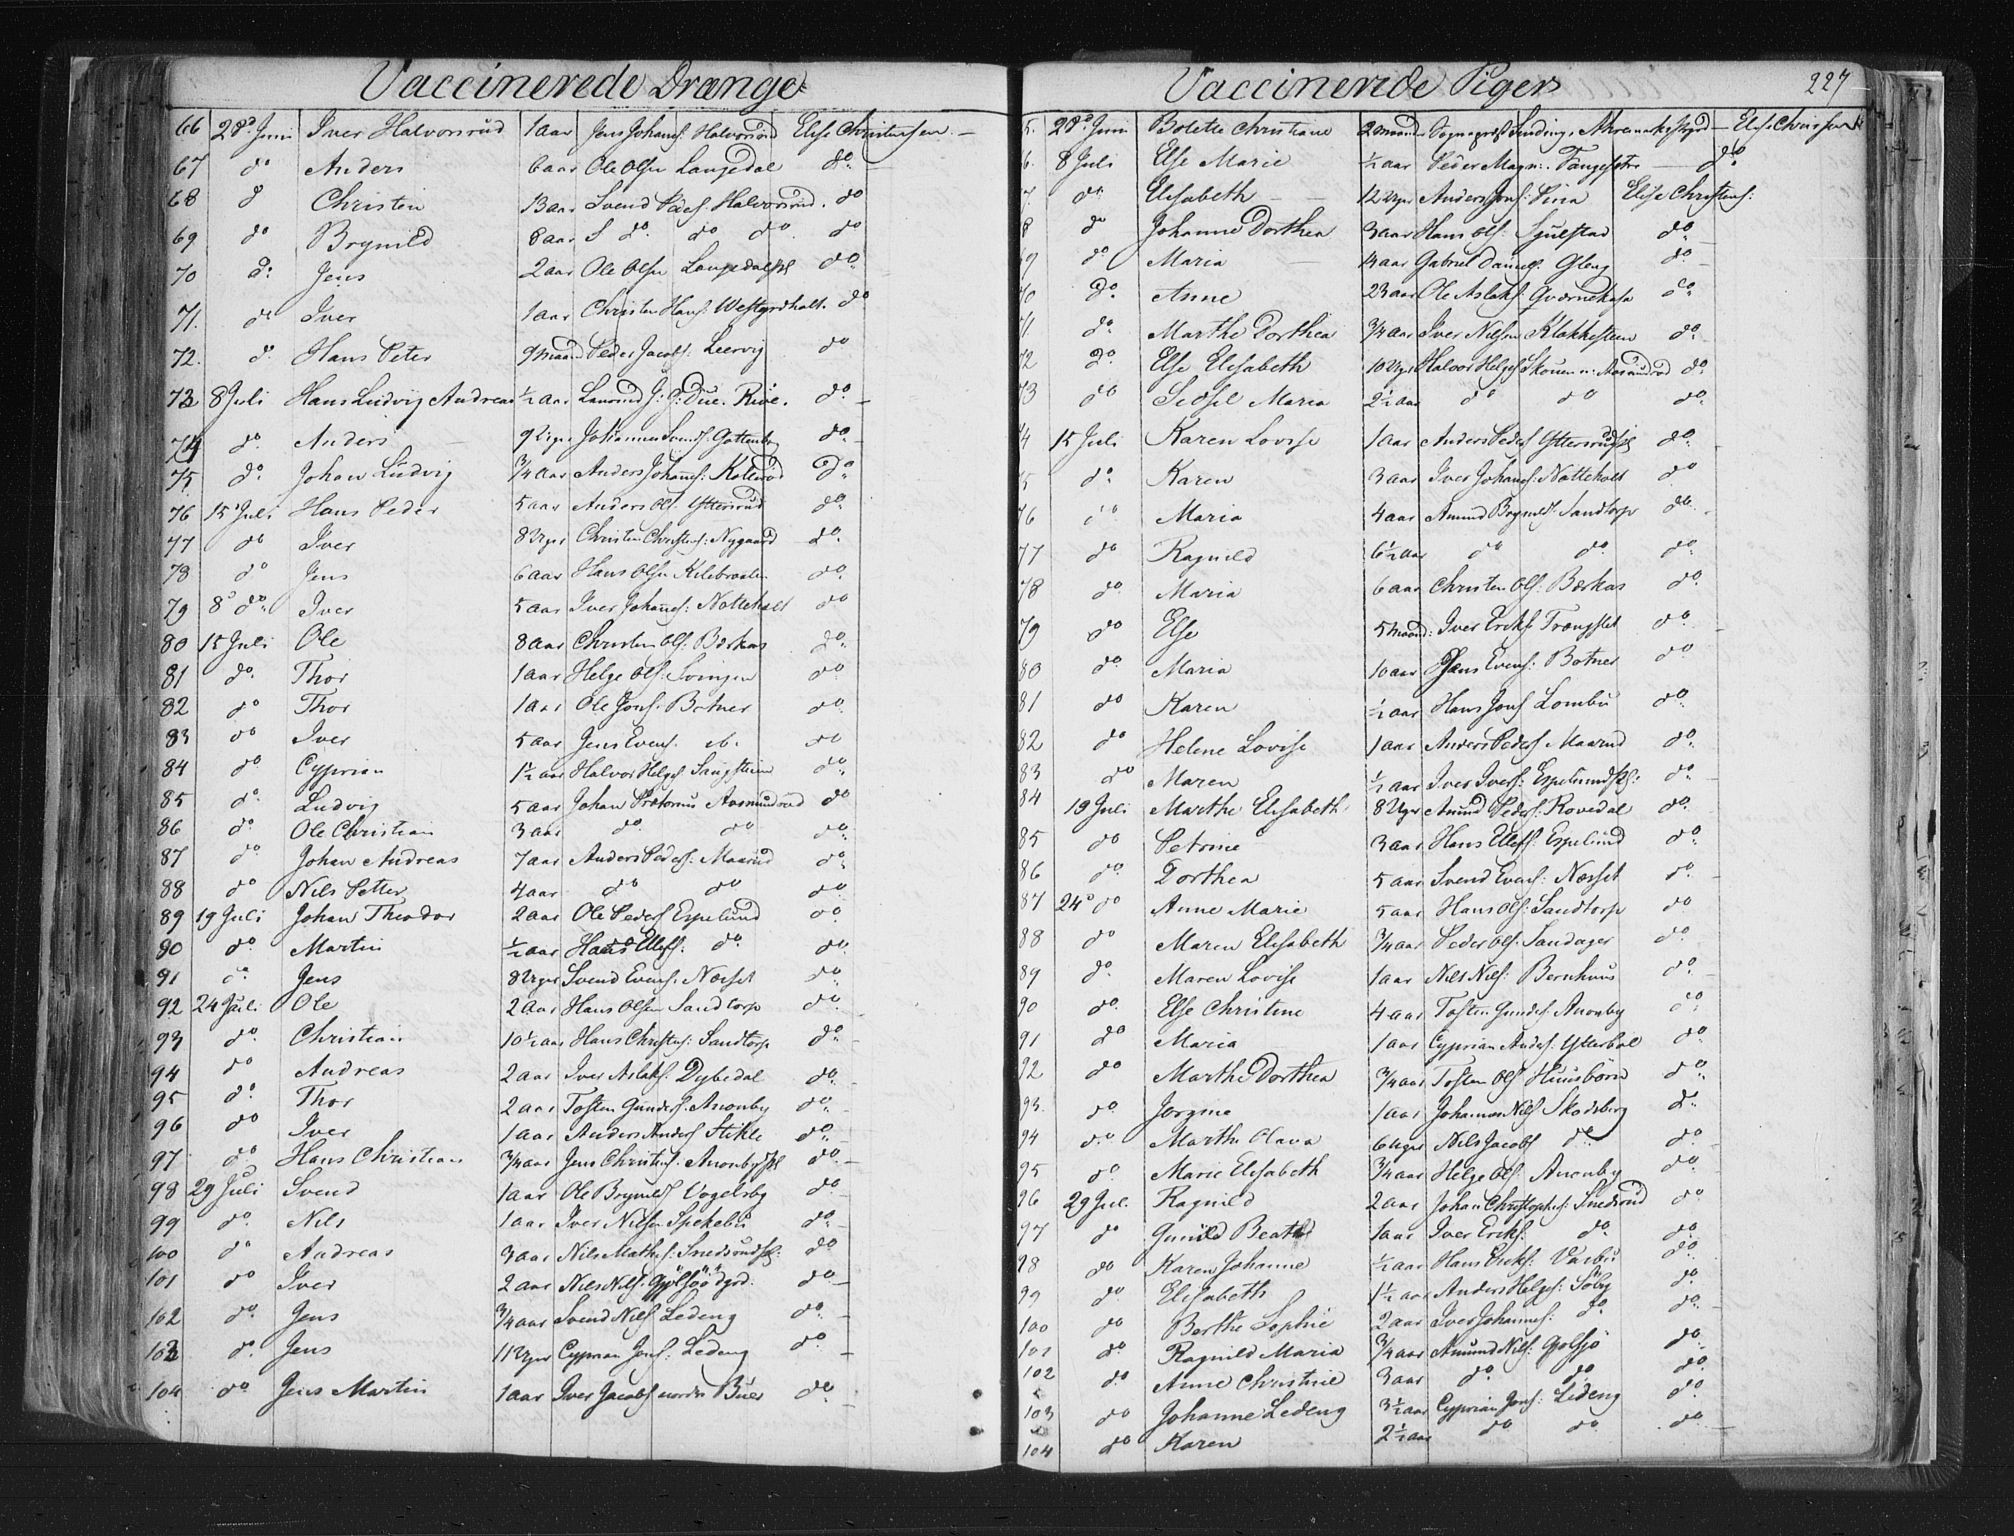 Vaccinerede Drænge
66 28d Juni Iver Halvorsrud 1 aar Jens Johans: Halvorsrød Elise Christensen
67 do Anders 6 aar Ole Olsen Langedal do
68 d Christen 13 aar Svend Peders: Halvorsrud. do
69 do Brynild 8 aar S do do do do
70 do Jens 2 aar Ole Olsen Langedal do
71. do Iver 1 aar Christen Hans: do
72. do Hans Peter 9 maan Peder Jacobs: Leervig do
73 8 Juli Hans Ludvig Andreas ½ aar J: G: Due. do
74 do Anders 9 Uger Johannes do
75. do Johan Ludvig ¾ aar Anders Johans: Kollerød do
76 15 Juli Hans Peder 5 aar Anders Ols: Yttersrud do
77 do Iver 8 Uger Christen Christens: Nygaard do
78 do Jens 6 aar Hans Olsen do
79 8d do Iver 5 aar Iver Johans: Nötteholt do
80 15 Juli Ole 8 aar Christen Ols: Bærkas do
81 do Thor 1 aar Helge Ols: Svingen do
82 do Thor 1 aar Ole Jens: Botner do
83 do Iver 5 aar Jens Evens. do
84 do Cyprian 1½ aar Halvor Helges: do
85 do Ludvig 5 aar Johan Prætorius Aasmundrød do
86 do Ole Christian 3 aar do do do
87 do Johan Andreas 7 aar Anders Peders: Maarud do
88 do Nils Petter 4 aar do do do
89 19 Juli Johan Theodor 2 aar Ole Peders: Espelund do
90 do Martin ½ aar Hans Ellefs. do do
91 do Jens 8 Uger Svend Evens: Næsset do
92 24 Juli Ole 2 aar Hans Olsen Sandtorp do
93 do Christian 10½ aar Hans Christens: Sandtorp do
94 do Andreas 2 aar Iver Aslaks: Dybedal do
95 do Thor 2 aar Tosten Gunders. Anonby do
96 do Iver 1 aar Anders Anders: do
97 do Hans Christian ¾ aar Jens Christens. Anonby do
98 29 Juli Svend 1 aar Ole Brynilds: Vogelsby do
99 do Nils 1 aar Iver Nilsen Spekebu do
100 do Andreas 3 aar Nils Mathis: do
101 do Iver 2 aar Nils Nils. do
102 do Jens ¾ aar Svend Nils: Ledeng do
103 do Jens 11 Uger Cyprian Jens: Ledeng do
104 do Jens Martin 1 aar Iver Jacobs: nordre Buer do
Vaccinerede Piger 227
5. 28d Juni Bolette Christiane 2 maan Sogneprest Elise Christensen
6. 8 Juli Else Marie ½ aar Peder Magn: do
7. do Elisabeth 12 Uger Anders Jens: Elise Christens:
8 do Johanne Dorthea 3 aar Hans Ols: do
69 do Maria 14 aar Gabriel Daniels. Gleng do
70 do Anne 23 aar Ole Aslaks: do
71 do Marthe Dorthea ¾ aar Iver Nilsen Klokkesteen do
72 do Else Elisabeth 10 Uger Halvor Helges: do
73 do Sidsel Maria 2½ aar do do do
74 15 Juli Karen Lovise 1 aar Anders Peders: do
5 do Karen 3 aar Iver Johans: Nötteholt do
76 do Maria 4 aar Amund Brynilds: Sandtorp do
77 do Ragnild 6½ aar do do do
78 do Maria 6 aar Christen Ols: Bærkas do
79 do Else 5 maan: Iver Eriks: do
80 do Maria 10 aar Jens Evens: Botner do
81 do Karen ½ aar Hans Jens: Lombu do
82 do Helene Lovise 1 aar Anders Peders: Maarud do
83 do Maren ½ aar Iver Ivers: do
84 19 Juli Marthe Elisabeth 8 Uger Amund Peders: Rovedal do
85 do Petrine 3 aar Hans Ellefs: Espelund do
86 do Dorthea 5 aar Svend Evens: Næsset do
87 24d do Anne Marie 5 aar Hans Ols: Sandtorp do
88 do Maren Elisabeth ¾ aar Peder Ols: Sandager do
89 do Maren Lovise 1 aar Nils Nils: Bernhuus do
90 do Else Christine 4 aar Tosten Gunders. Anonby do
91 do Maria 1 aar Cyprian Anders: Ytterbøl do
92 do Marthe Dorthea ¾ aar Tosten Ols: do
93. do Jorgine 1 aar Johannes Nils: Skodsberg do
94 do Marthe Olava 6 Uger Nils Jacobs: do do
95 do Marie Elisabeth ¾ aar Helge Ols: Anonby do
96 29 Jul. Ragnild 2 aar Johan Christophers: Snedsrud do
97 do Gunild Beathe 1 aar Iver Eriks: do do
98 do Karen Johanne ½ aar Hans Eriks: Vasbu do
99 do Elisabeth 1½ aar Anders Helges: Söby do
100 do Berthe Sophie 2 aar Iver Johannes: do do
101 do Ragnild Maria ¾ aar Amund Nils: Gjølsjø do
102 do Anne Christine 3 aar do do do
103 do Johanne Ledeng 3½ aar Cyprian Jens: Ledeng do
104 do Karen 2½ aar do do do